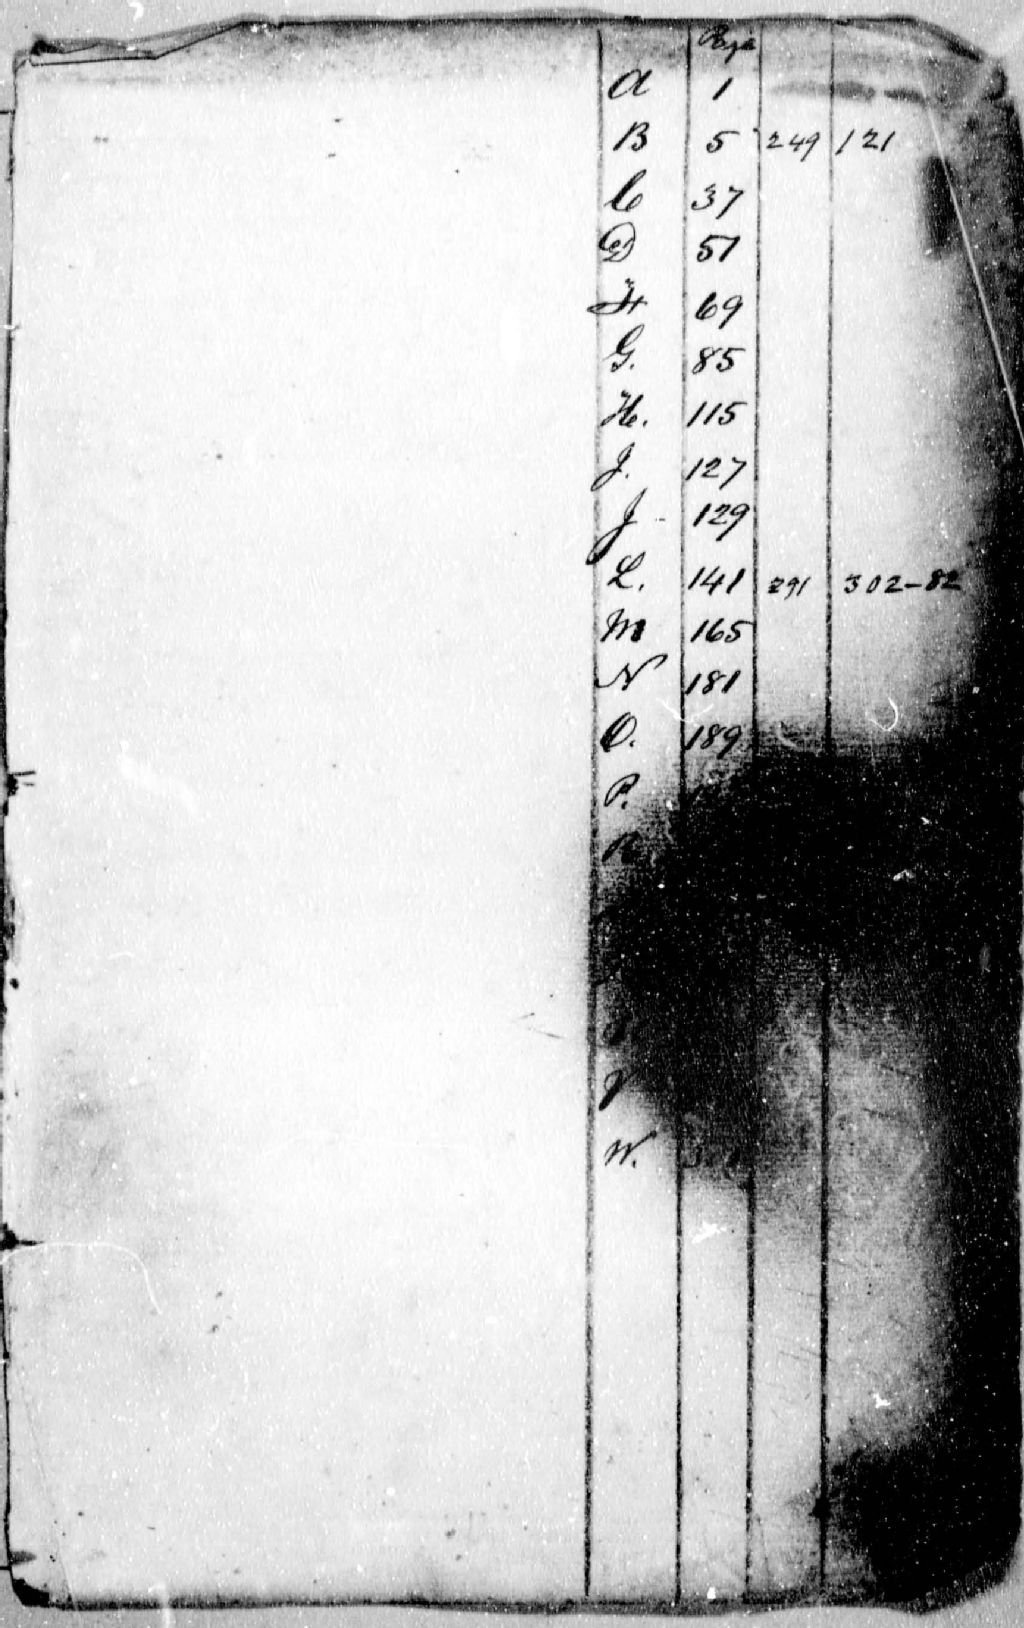 Page
A 1
B 5 249 121
C 37
D 51
F 69
G. 85
H. 115
J. 127
J 129
L. 141 291 302-82
M 165
N 181
O. 189
P.
R
V
W.